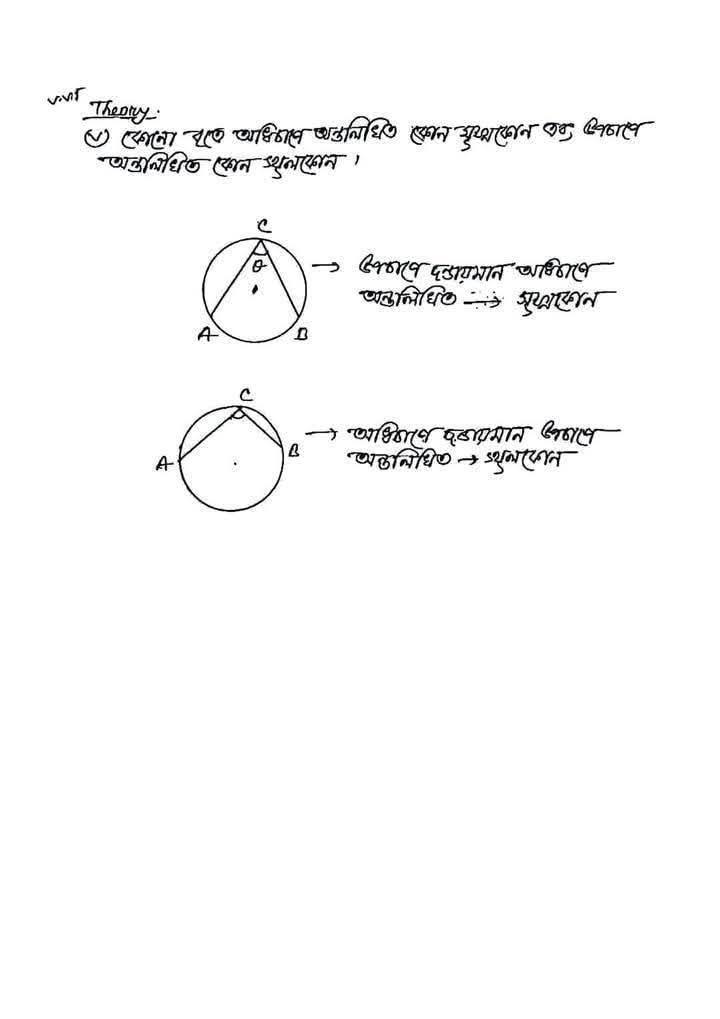 v.v.i
Theory.
(v) কোনো বৃত্তে অধিচাপে অন্তর্লিখিত কোন সূক্ষ্মকোন এবং উপচাপে
অন্তর্লিখিত কোন স্থূলকোন ।
C
θ
A B
→ উপচাপে দন্ডায়মান অধিচাপে
অন্তর্লিখিত → সূক্ষ্মকোন
C
A B
→ অধিচাপে দন্ডায়মান উপচাপে
অন্তর্লিখিত → স্থূলকোন